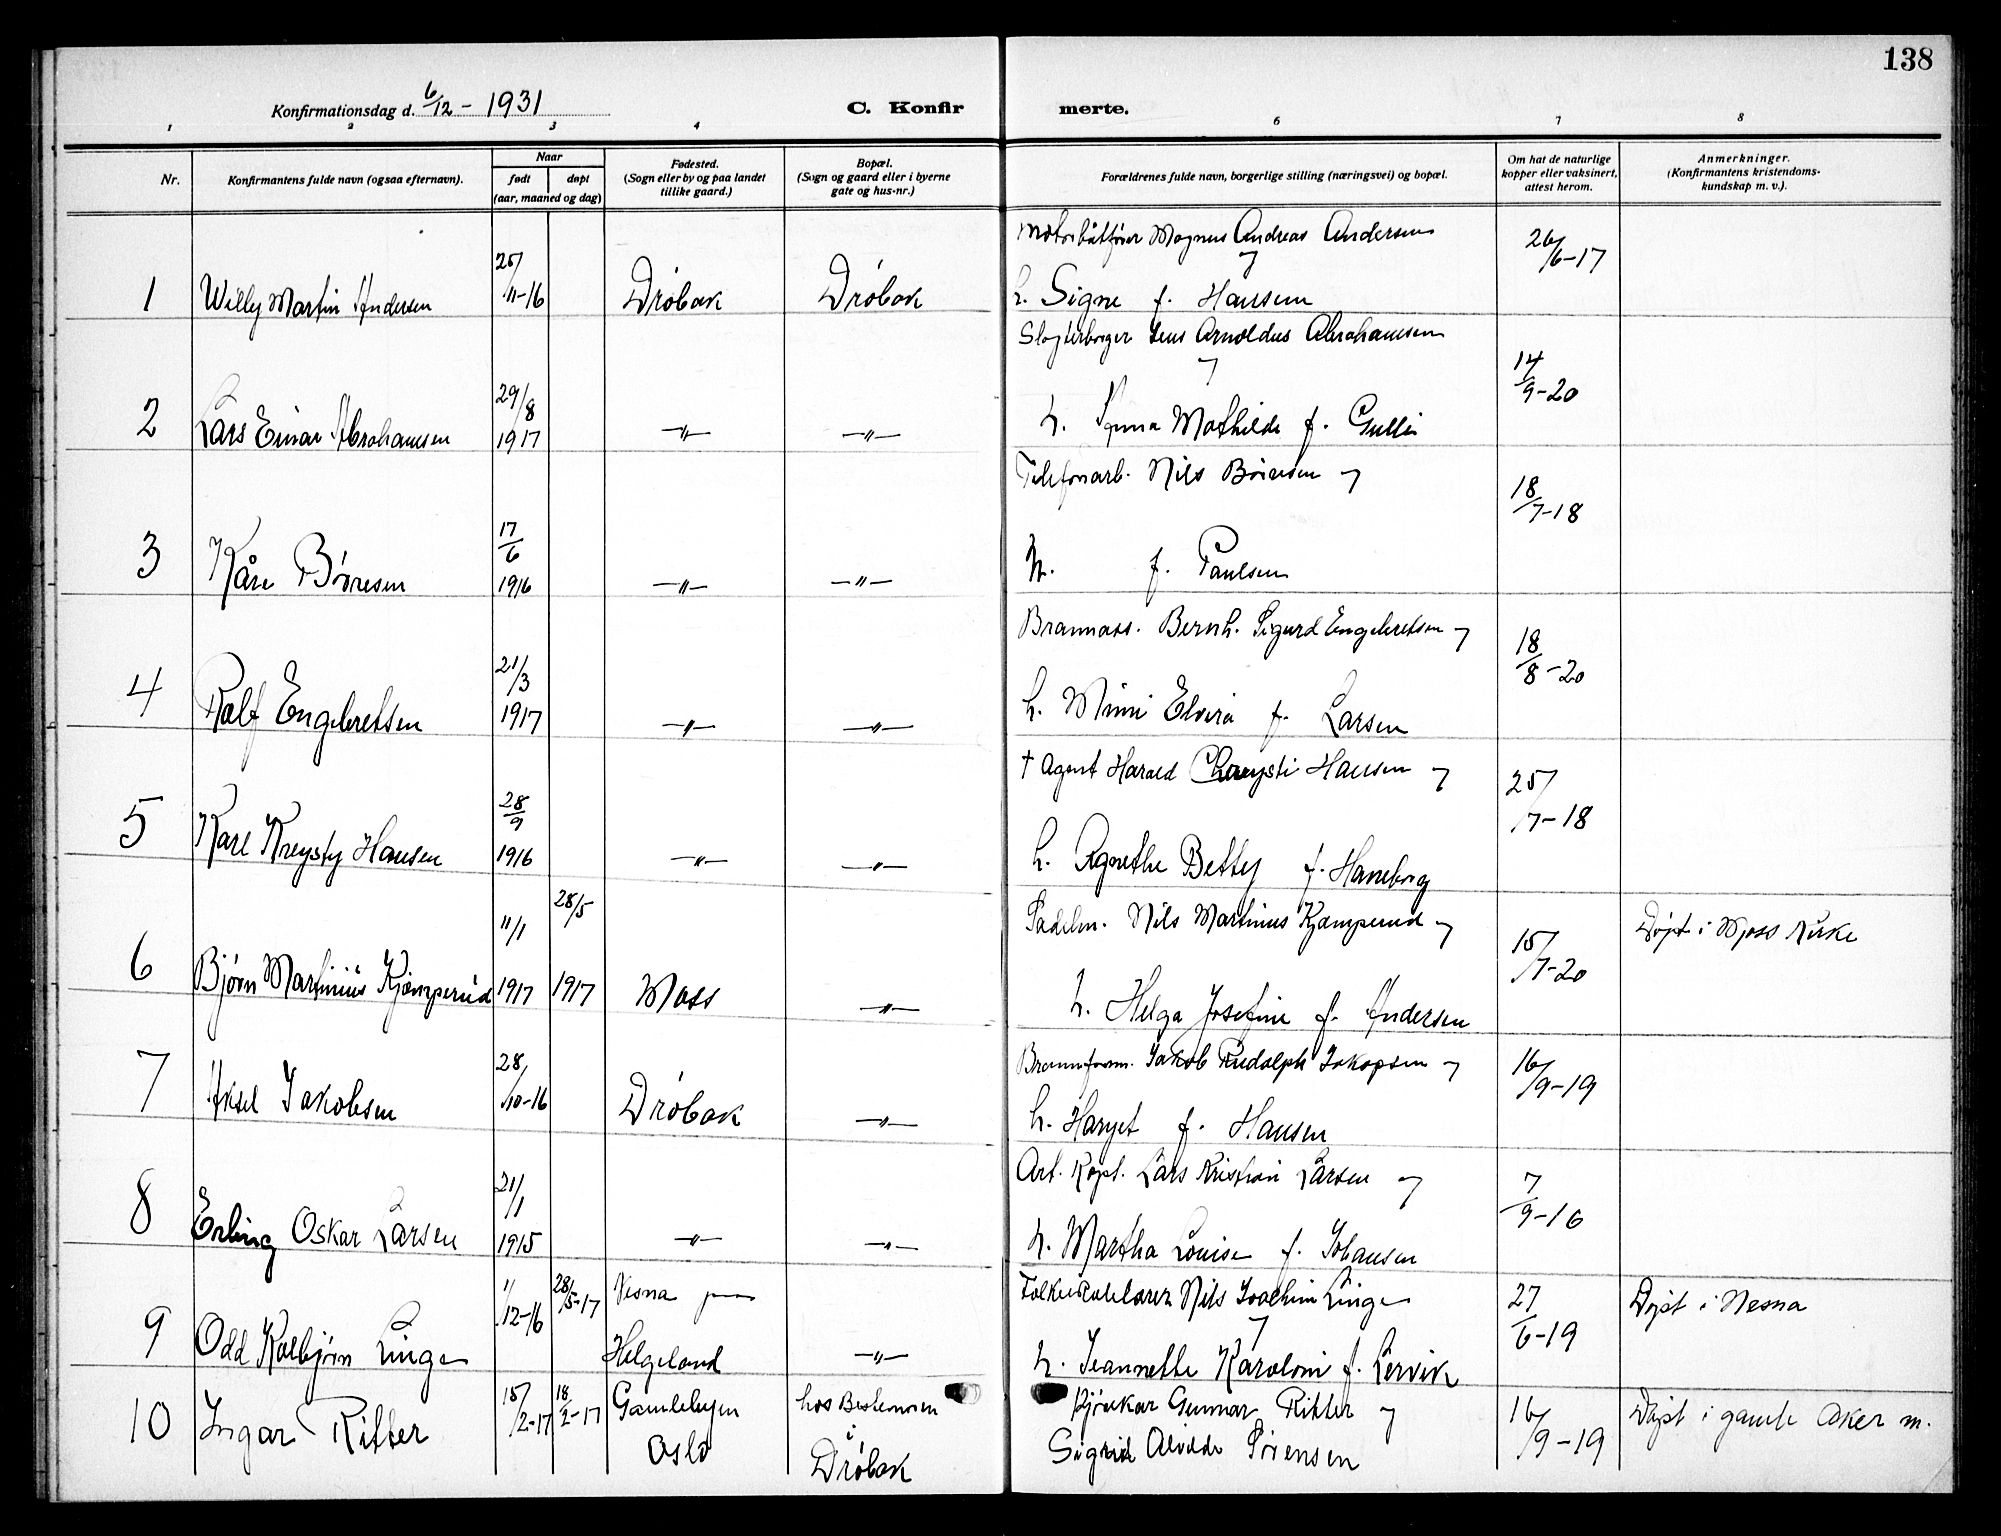 138
Konfirmationsdag d. 6/12 - 1931
C. Konfirmerte.
1 2 3 4 6 7 8
Nr.
Konfirmantens fulde navn (ogsaa efternavn).
Naar
født
døpt
(aar, maaned og dag)
Fødested.
(Sogn eller by og paa landet
tillike gaard.)
Bopæl.
(Sogn og gaard eller i byerne
gate og hus-nr.)
Forældrenes fulde navn, borgerlige stilling (næringsvei) og bopæl.
Om hat de naturlige
kopper eller vaksinert,
attest herom.
Anmerkninger.
(Konfirmantens kristendoms-
kundskap m. v.).
1 Willy Martin Andersen 25/11-16 Drøbak Drøbak
Motorbåtfører Magnus Andreas Andersen og
h. Signe f. Hansen
26/6-17
2 Lars Einar Abrahamsen 29/8 1917 —"— —"—
Jens Arnoldus Abrahamsen og
h. Mathilde f. Gulli
14/9-20
3 Kåre Børresen 17/6 1916 —"— —"—
Telefonarb. Nils Børresen og
h. f. Paulsen
18/7-18
4 Ralf Engebretsen 21/3 1917 —"— —"—
Brannass. Bernh. Sigurd Engebretsen og
h. Mimi Elvira f. Larsen
18/8-20
5 Karl Kreysty Hansen 28/9 1916 —"— —"—
† Agent Harald Hansen og
h. Agnethe Betty f. Haneborg
25/7-18
6 Bjørn Martinius Kjæmperud 11/1 1917 28/5 1917 Moss —"—
Sadelm. Nils Martinius Kjæmperud og
h. Helga Josefine f. Andersen
15/7-20
Døpt i Moss kirke
7 Aksel Jakobsen 28/10-16 Drøbak —"—
Brannform. Jakob Rudolph Jakopsen og
h. Haryet f. Hansen
16/9-19
8 Erling Oskar Larsen 21/1 1915 —"— —"—
Art. Kapt. Lars Kristian Larsen og
h. Martha Louise f. Johansen
7/9-16
9 Odd Kolbjørn Linge 1/12-16 28/5-17 Nesna
Helgeland —"—
Folkeskolelærer Nils Joachim Linge og
h. Jeannette Karoloni f. Lervik
27/6-19
Døpt i Nesna
10 Ingar Ritter 15/2-17 18/2-17 Gamlebyen
Oslo
hos Bestemoren
i
Drøbak
Gunnar Ritter og
Sigrid Alvilde Sørensen
16/9-19
Døpt i gamle Aker m.